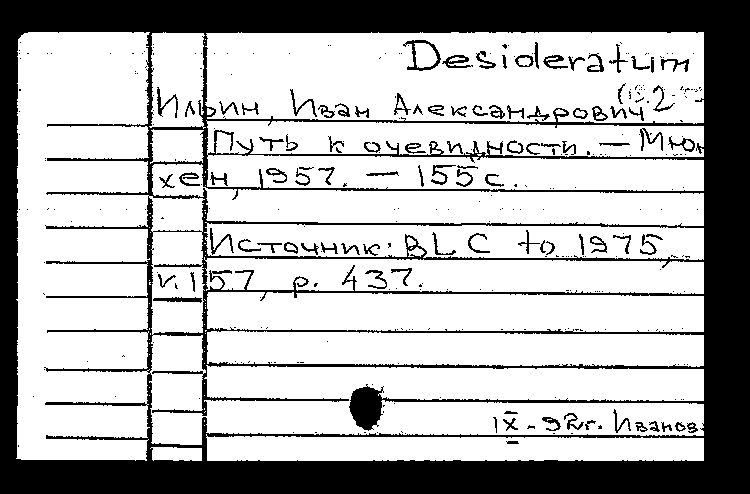 Desideratum
Ильин, Иван Александрович
Путь к очевидности. — Мюн
хен, 1957. — 155 с.
Источник: BLC to 1975,
v. 157, p. 437.
IX - 92г. Иванов